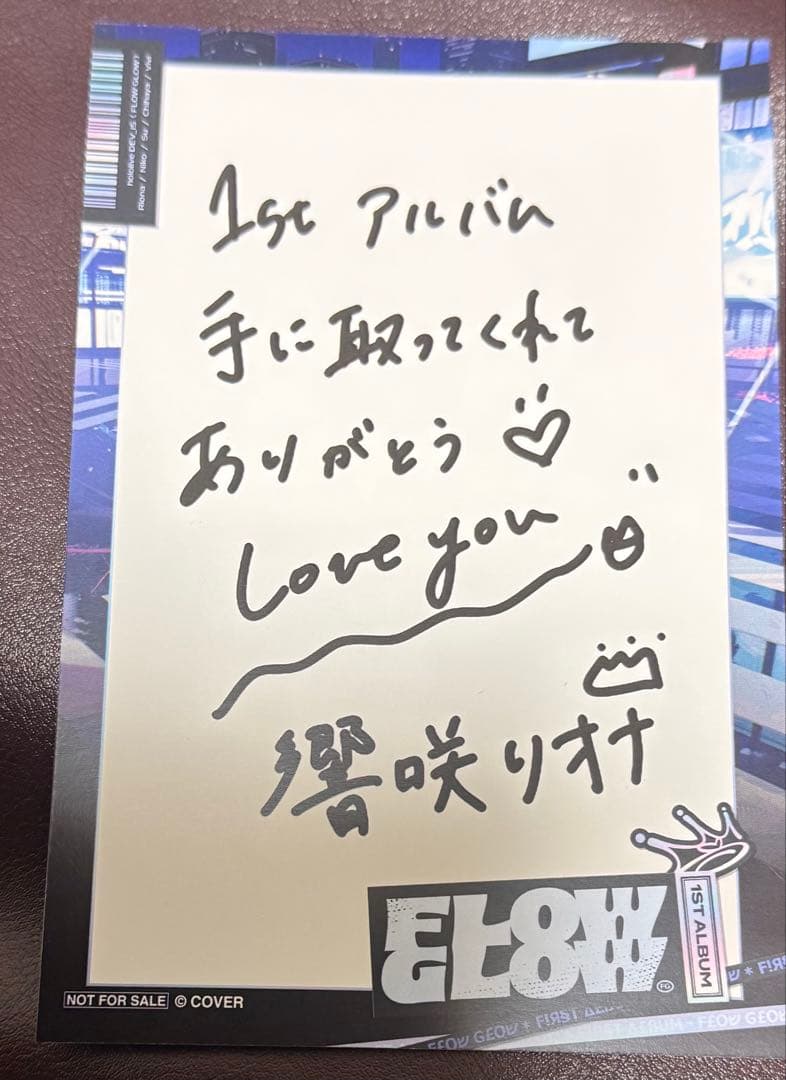 hololive DEV_IS ( FLOW GLOW )
Riona / Niko / Su / Chihaya / Vivi
1st アルバム
手に取ってくれて
ありがとう
Love you
響咲リオナ
FLOW GLOW
1ST ALBUM
NOT FOR SALE © COVER